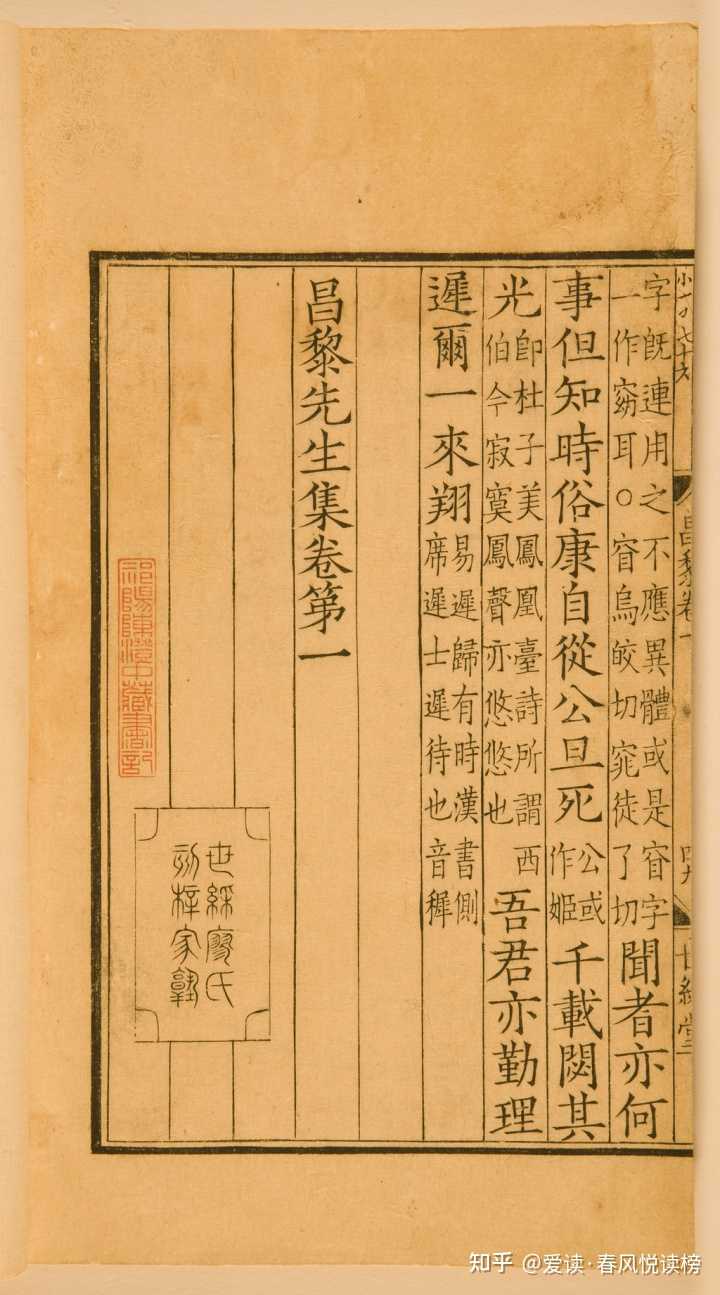 昌黎卷一
世綵堂
字既連用之不應異體或是窅字
一作窈耳○窅烏皎切窕徒了切
聞者亦何
事但知時俗康自從公旦死
公或
作姬
千載閟其
光
即杜子美鳳凰臺詩所謂西
伯今寂寞鳳聲亦悠悠也
吾君亦勤理
遲爾一來翔
易遲歸有時漢書側
席遲士遲待也音穉
昌黎先生集卷第一
世綵廖氏
刻梓家塾
祁陽陳澄中藏書記
知乎 @爱读·春风悦读榜